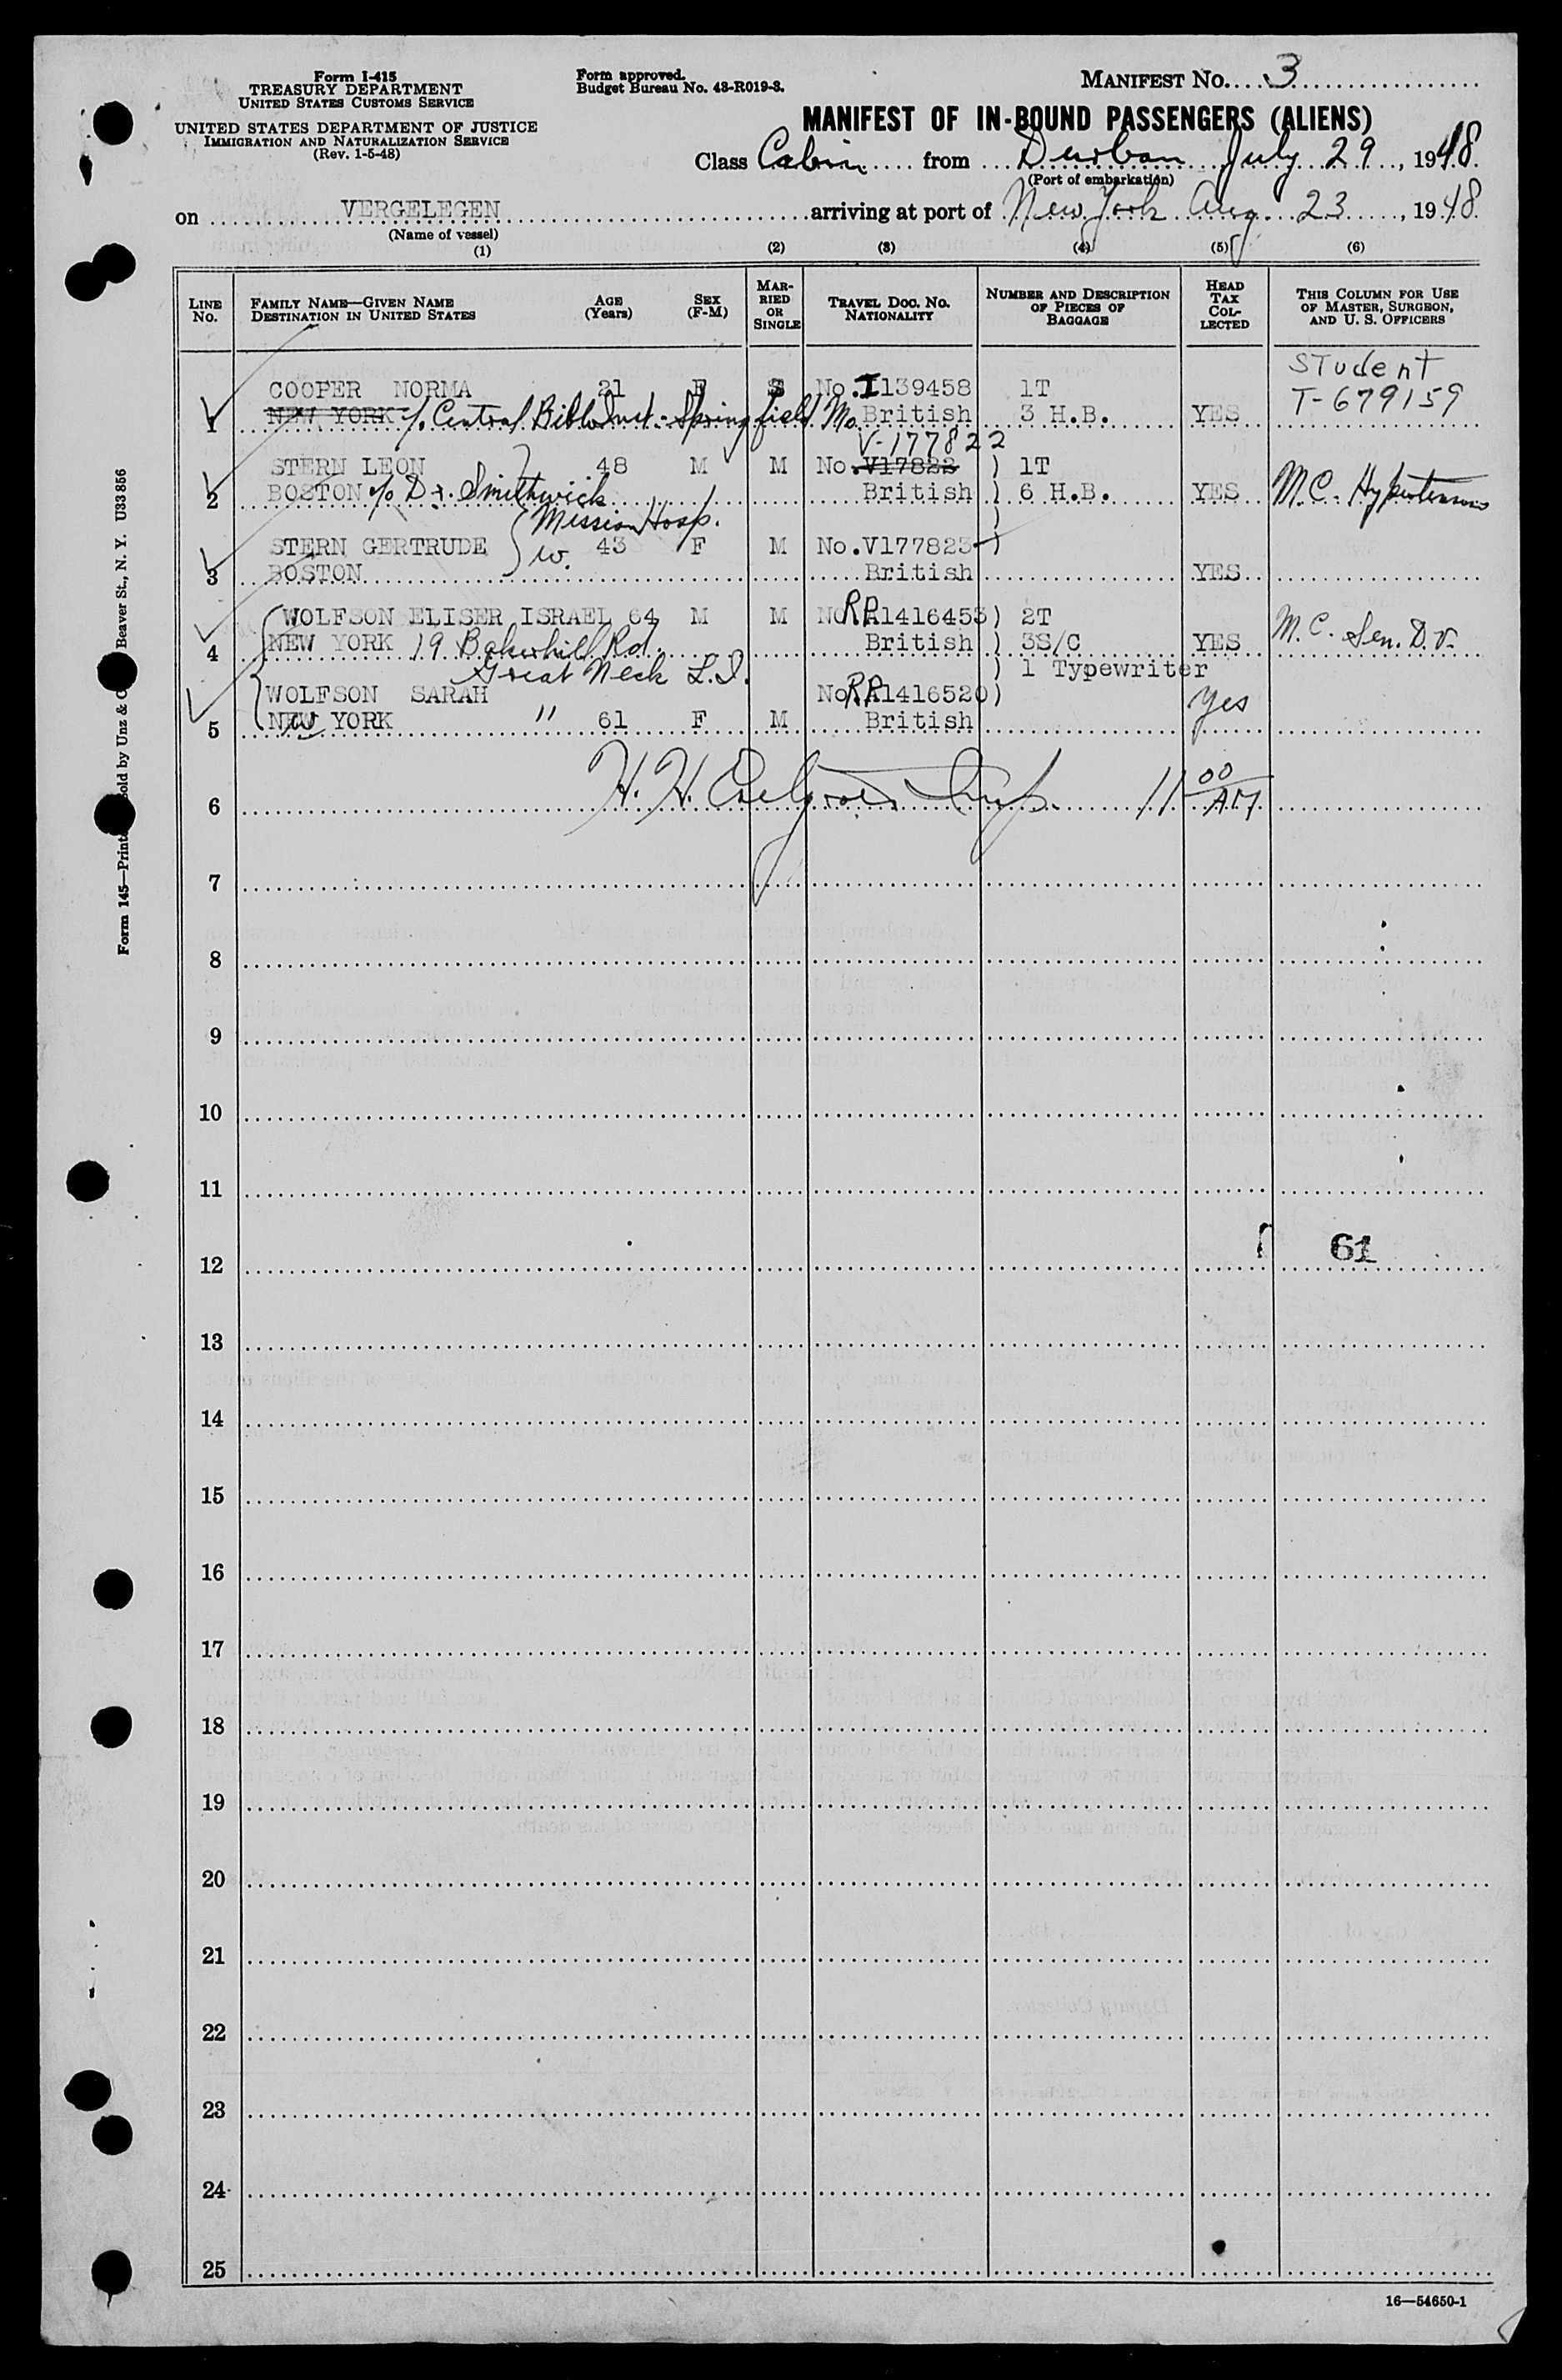 Form I-415
TREASURY DEPARTMENT
UNITED STATES CUSTOMS SERVICE
UNITED STATES DEPARTMENT OF JUSTICE
IMMIGRATION AND NATURALIZATION SERVICE
(Rev. 1-5-48)
Form approved.
Budget Bureau No. 43-R019-3.
MANIFEST No. 3
MANIFEST OF IN-BOUND PASSENGERS (ALIENS)
Class Cabin from Durban July 29, 1948.
(Port of embarkation)
on VERGELEGEN arriving at port of New York Aug. 23, 1948
(Name of vessel)
(1) (2) (3) (4) (5) (6)
LINE No. FAMILY NAME—GIVEN NAME DESTINATION IN UNITED STATES AGE (Years) SEX (F-M) MARRIED OR SINGLE TRAVEL DOC. No. NATIONALITY NUMBER AND DESCRIPTION OF PIECES OF BAGGAGE HEAD TAX COLLECTED THIS COLUMN FOR USE OF MASTER, SURGEON, AND U. S. OFFICERS
Student
COOPER NORMA 21 F S No. I139458 1T T-679159
1 NEW YORK %. Central Bible Inst. - Springfield Mo. British 3 H.B. YES
V-177822
STERN LEON 48 M M No. V17822 ) 1T
2 BOSTON c/o Dr. Smithwick British ) 6 H.B. YES M.C. Hypertension
Mission Hosp. )
STERN GERTRUDE w. 43 F M No. V177823 )
3 BOSTON British YES
WOLFSON ELISER ISRAEL 64 M M NO RA1416453 ) 2T
4 NEW YORK 19 Bakerhill Rd. British ) 3S/C YES M.C. Sen. D.V.
Great Neck L.I. ) 1 Typewriter
WOLFSON SARAH No. RA1416520 )
5 NEW YORK w " 61 F M British Yes
6 H. H. Insp. 11 00 AM
7
8
9
10
11
61
12
13
14
15
16
17
18
19
20
21
22
23
24
25
16—54650-1
Form 145—Print Sold by Unz & C Beaver St., N. Y. U33 856